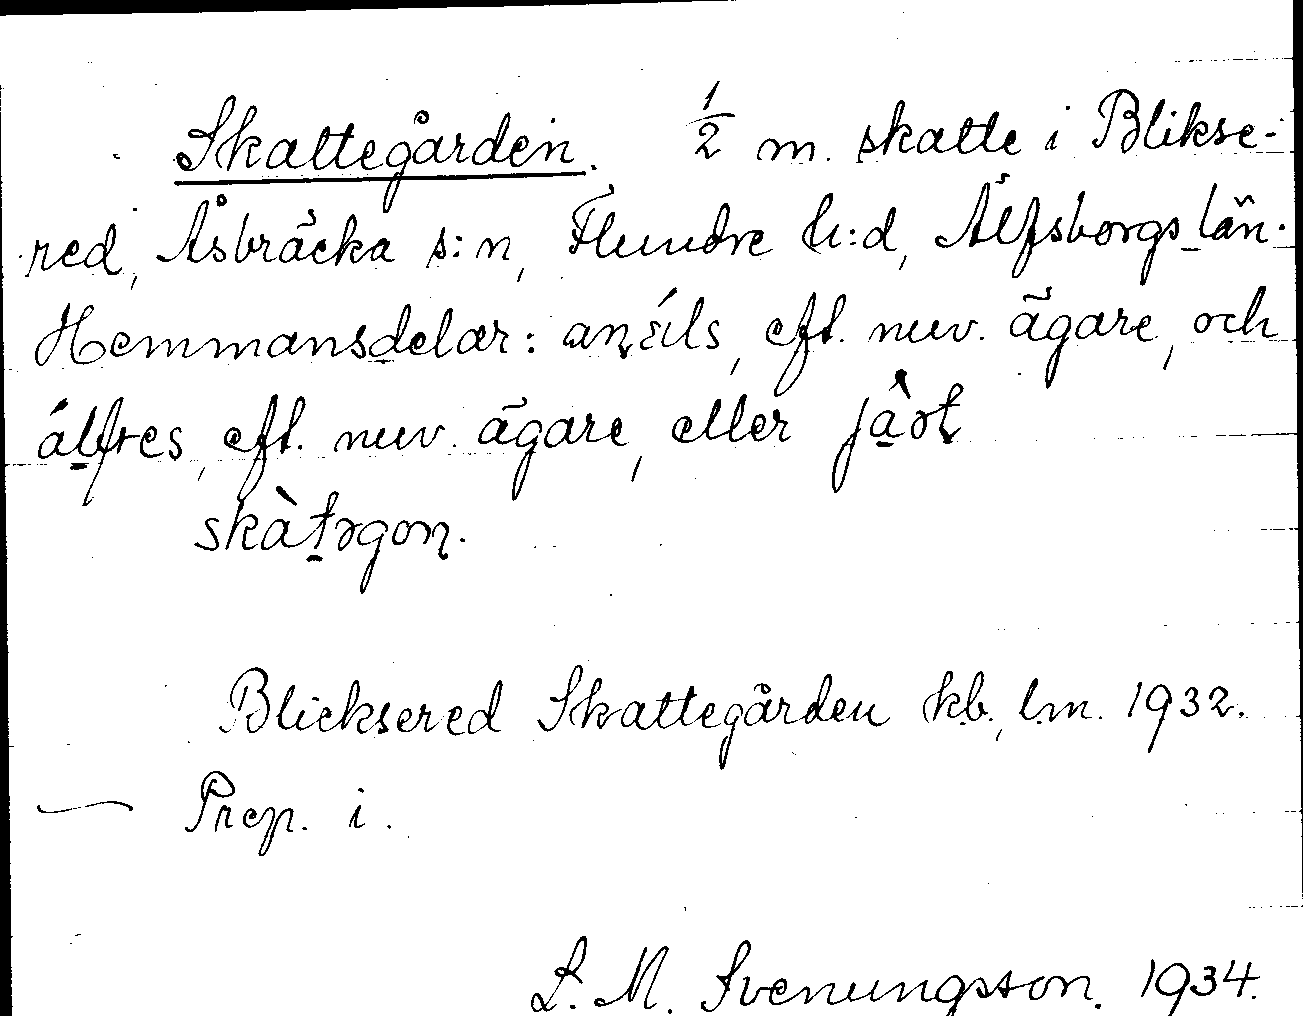 Skattegården. 1/2 m. skatte i Blikse-
red, Åsbräcka s:n, Flundre h:d, Älfsborgs län.
Hemmansdelar: anₛíls, eft. nuv. ägare, och
álfres, eft. nuv. ägare, eller
skàtəgon.
Blicksered Skattegården kb., lm. 1932.
— Prep. i.
L. M. Svenungsson. 1934.